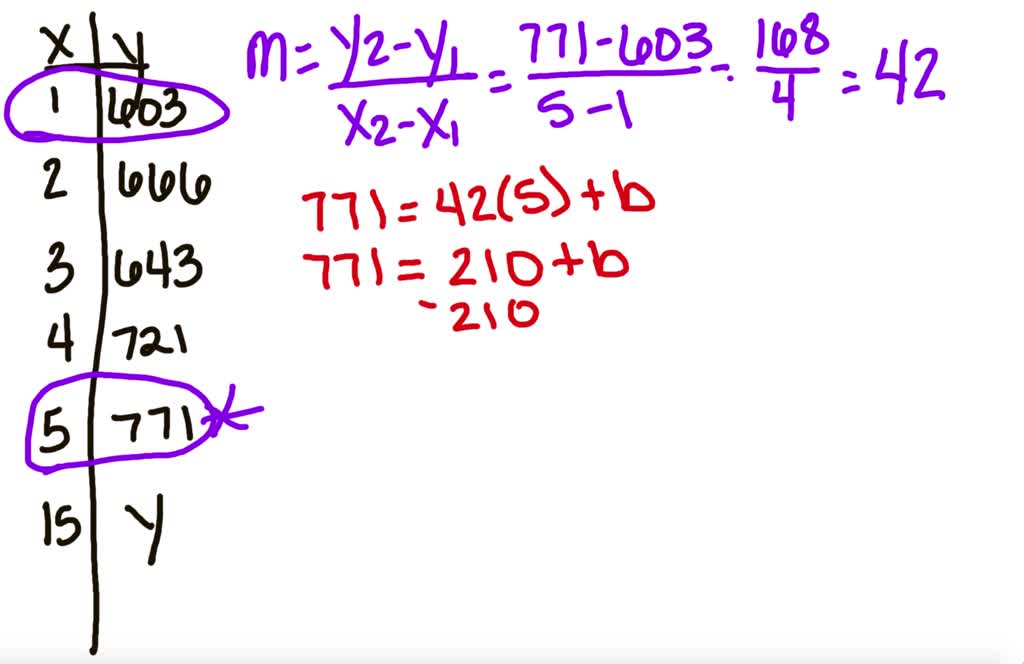 x y
1 603
2 666
3 643
4 721
5 771
15 y
m = y2-y1 / x2-x1 = 771-603 / 5-1 = 168 / 4 = 42
771 = 42(5) + b
771 = 210 + b
-210